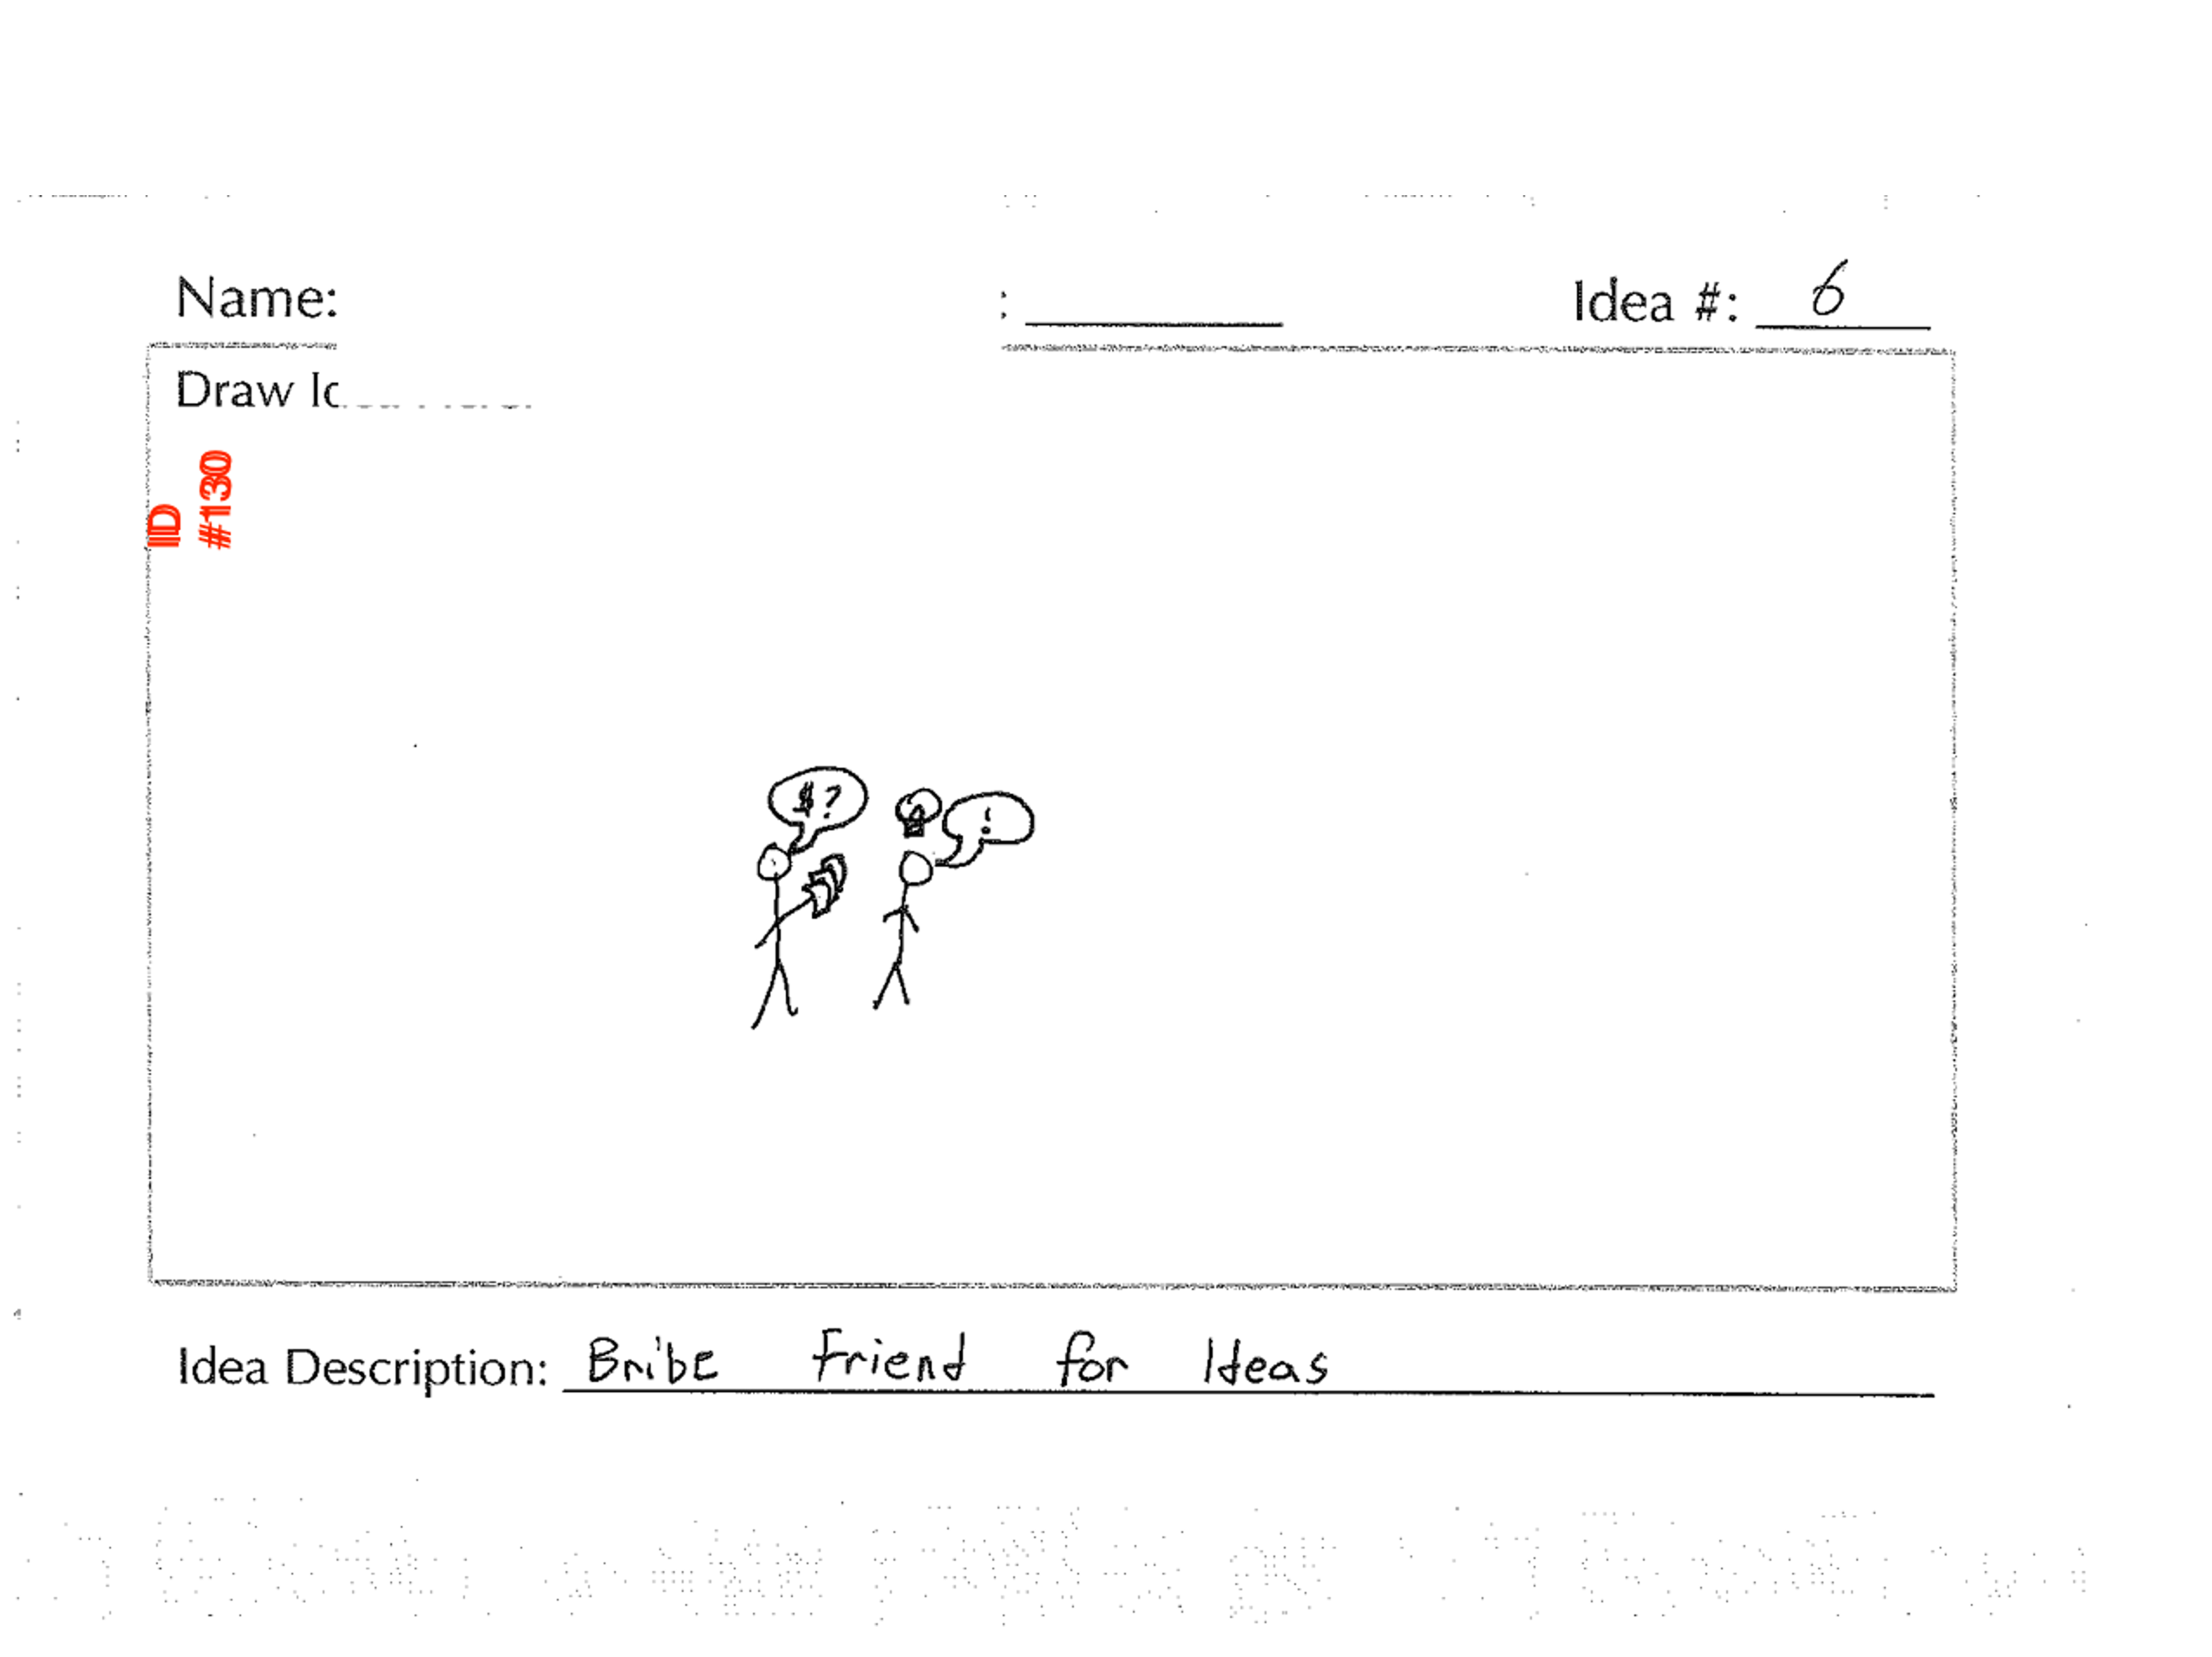 Name:
: Idea #: 6
Draw Id
ID
#130
$?
!
Idea Description: Bribe Friend for Ideas